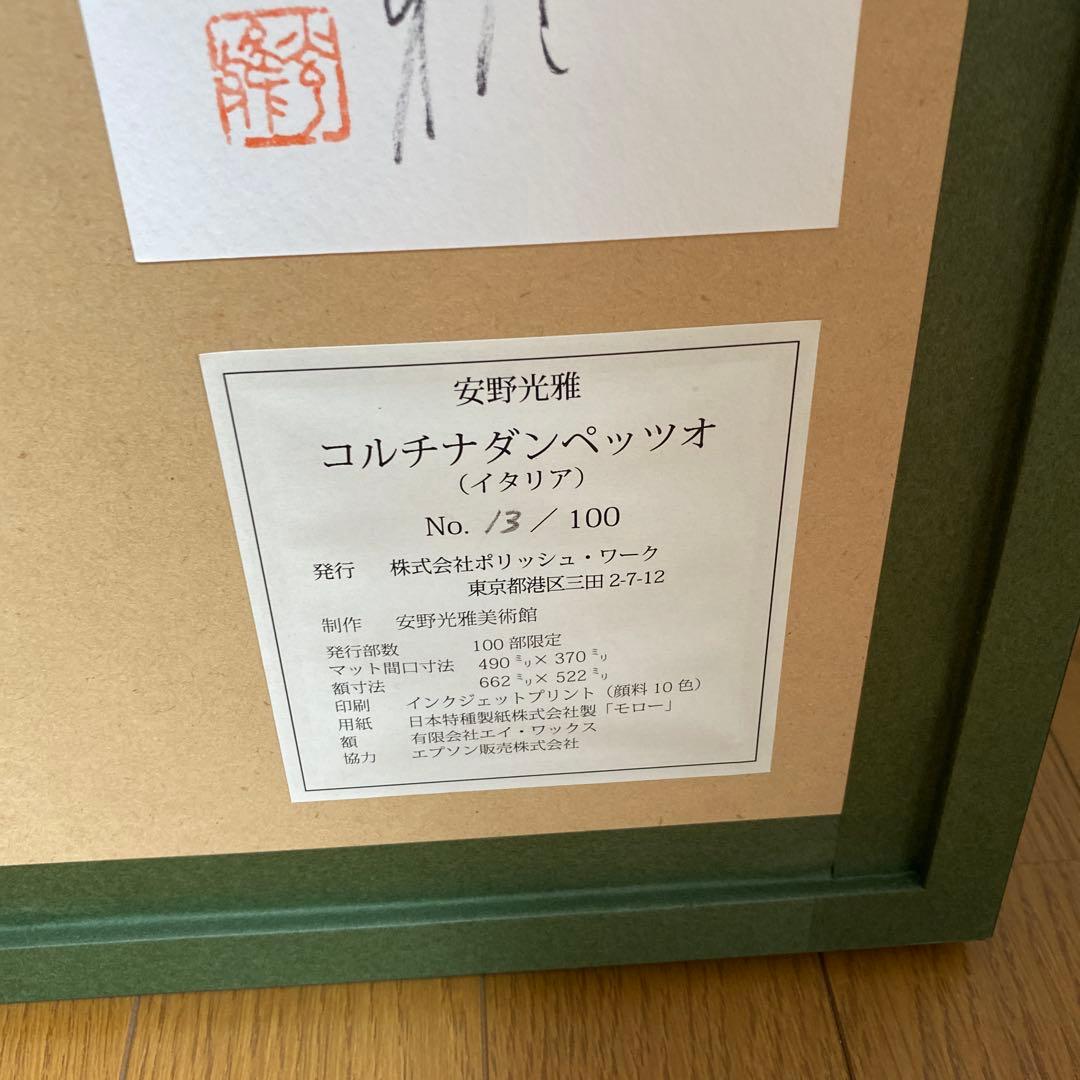 雅
安野光雅
コルチナダンペッツオ
（イタリア）
No. 13 / 100
発行 株式会社ポリッシュ・ワーク
東京都港区三田 2-7-12
制作 安野光雅美術館
発行部数 100 部限定
マット間口寸法 490 ㍉× 370 ㍉
額寸法 662 ㍉× 522 ㍉
印刷 インクジェットプリント（顔料 10 色）
用紙 日本特種製紙株式会社製「モロー」
額 有限会社エイ・ワックス
協力 エプソン販売株式会社